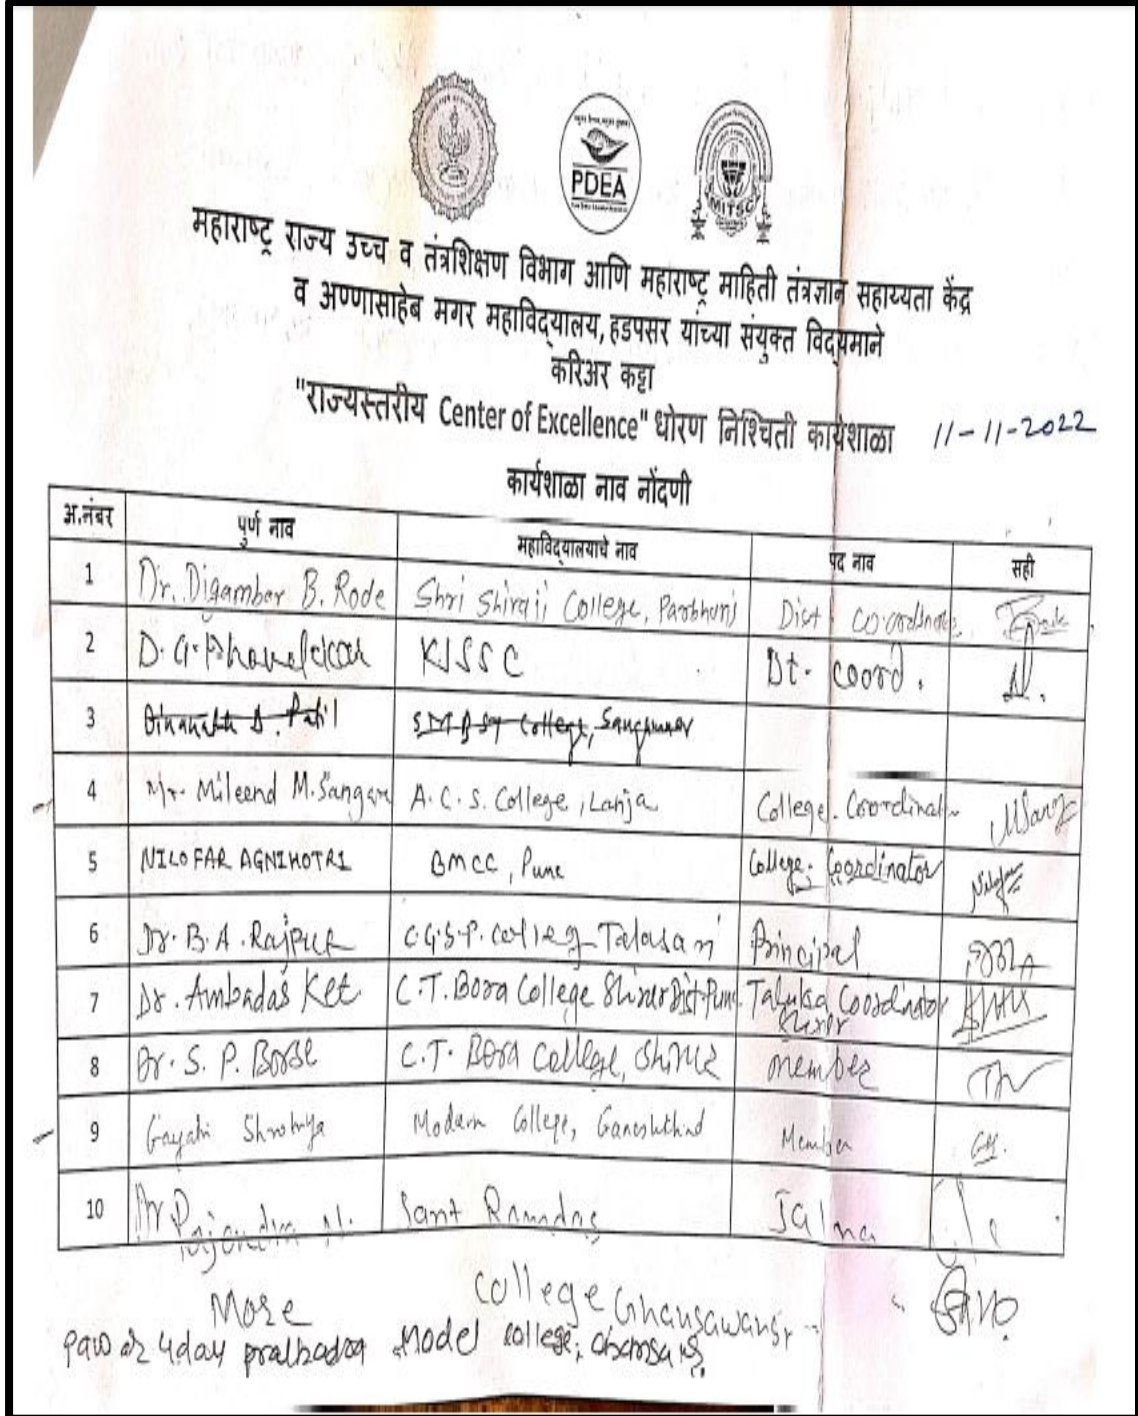 PDEA
MITSC
महाराष्ट्र राज्य उच्च व तंत्रशिक्षण विभाग आणि महाराष्ट्र माहिती तंत्रज्ञान सहाय्यता केंद्र
व अण्णासाहेब मगर महाविद्यालय, हडपसर यांच्या संयुक्त विद्यमाने
करिअर कट्टा
"राज्यस्तरीय Center of Excellence" धोरण निश्चिती कार्यशाळा 11-11-2022
कार्यशाळा नाव नोंदणी
अ.नंबर पुर्ण नाव महाविद्यालयाचे नाव पद नाव सही
1 Dr. Digambar B. Rode Shri Shivaji College, Parbhani Dist coordinator
2 D. G. KJSSC Dt. coord.
3 D. Patil College, Sangamner
4 Mr. Mileend M. Sangare A. C. S. College, Lanja College Coordinator
5 NILOFAR AGNIHOTRI BMCC, Pune College Coordinator
6 Dr. B. A. Rajput C.G.S.P. College Talasari Principal
7 Dr. Ambadas Ket C. T. Bora College Shirur Dist-Pune Taluka Coordinator
Shirur
8 Dr. S. P. Borse C. T. Bora College, Shirur member
9 Gayatri Modern College, Ganeshkhind Member
10 Dr Rajendra N. Sant Ramdas Jalna
More College Ghansawangi
uday pralhadrao Model college,